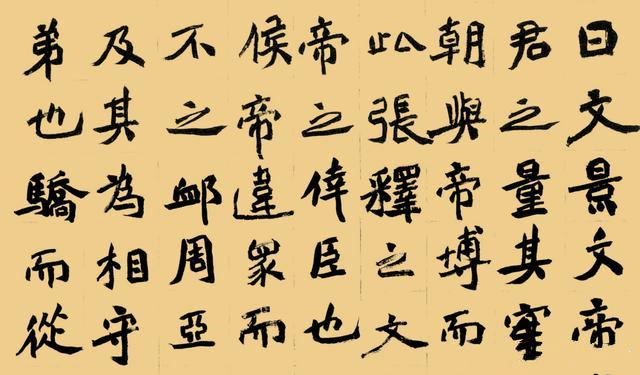 曰文景文帝
君之量其實
朝與帝博而
此張釋之文
帝之倖臣也
侯帝違眾而
不之卹周亞
及其為相守
弟也驕而從